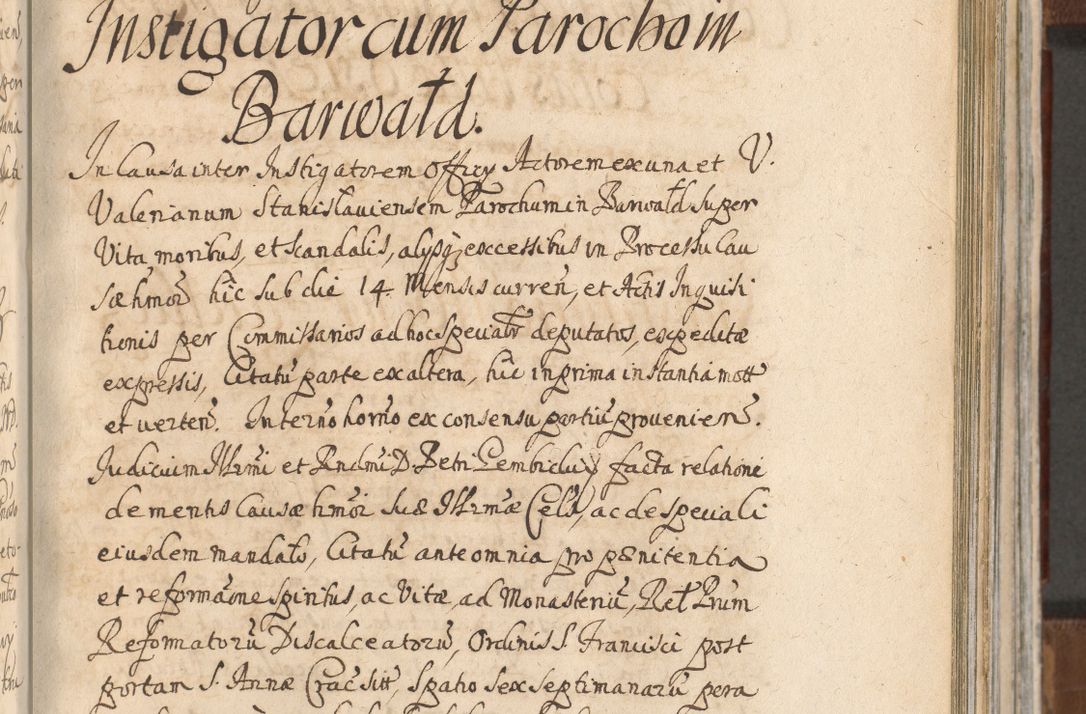 Instigator cum Parocho in
Barwałd.
In Causa inter Instigatorem Officij Actorem ex una et V.
Valerianum Stanislauiensem Parochum in Barwałd super
Vita moribus, et scandalis, alijsq; excessibus in Processu Cau
sæ hmōi hic sub die 14. Mensis curren̄, et Actis Inquisi
tionis per Commissarios ad hoc specialr̄ deputatos, expeditæ
expressis, Citatū parte ex altera, hic in prima instantia mott
et verten̄. In termo horno ex consensu partiū provenien̄.
Judicium Illrmi et Rndmi D. Petri Gembicky facta relatione
de mentis Causæ hmōi suæ Illrmæ Celsi, ac de speciali
eiusdem mandato, Citatū ante omnia pro pænitentia
et reformaōne spiritus, ac Vitæ, ad Monasteriū, Rel Prūm
Reformatorū Discalceatorū, Ordinis S. Francisci post
portam S. Annæ Crac̄ sitt, spatio sex septimanarū pera